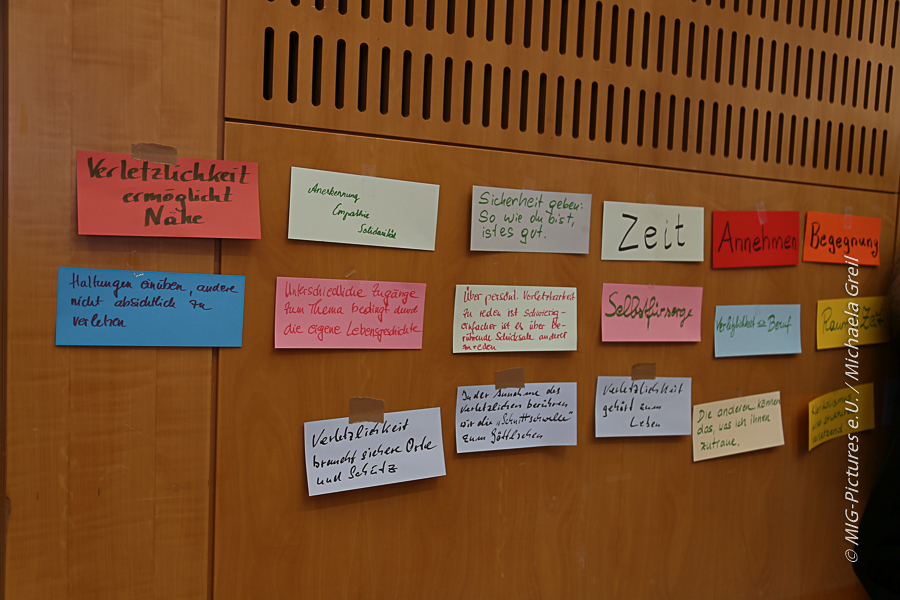 Verletzlichkeit
ermöglicht
Nähe
Anerkennung
Empathie
Solidarität
Sicherheit geben:
So wie du bist,
ist es gut.
Zeit
Annehmen
Begegnung
Haltungen einüben, andere
nicht absichtlich zu
verletzen
Unterschiedliche Zugänge
zum Thema bedingt durch
die eigene Lebensgeschichte
Über persönl. Verletzbarkeit
zu reden ist schwierig -
einfacher ist es über be-
rührende Schicksale anderer
zu reden
Selbstfürsorge
Verletzlichkeit Beruf
Raum Zeit
Verletzlichkeit
braucht sichere Orte
und Schutz
In der Annahme des
Verletzlichen berühren
wir die „Schnittschwelle"
zum Göttlichen
Verletzlichkeit
gehört zum
Leben
Die anderen können
das, was ich ihnen
zutraue.
und
© MIG-Pictures e.U. / Michaela Greil